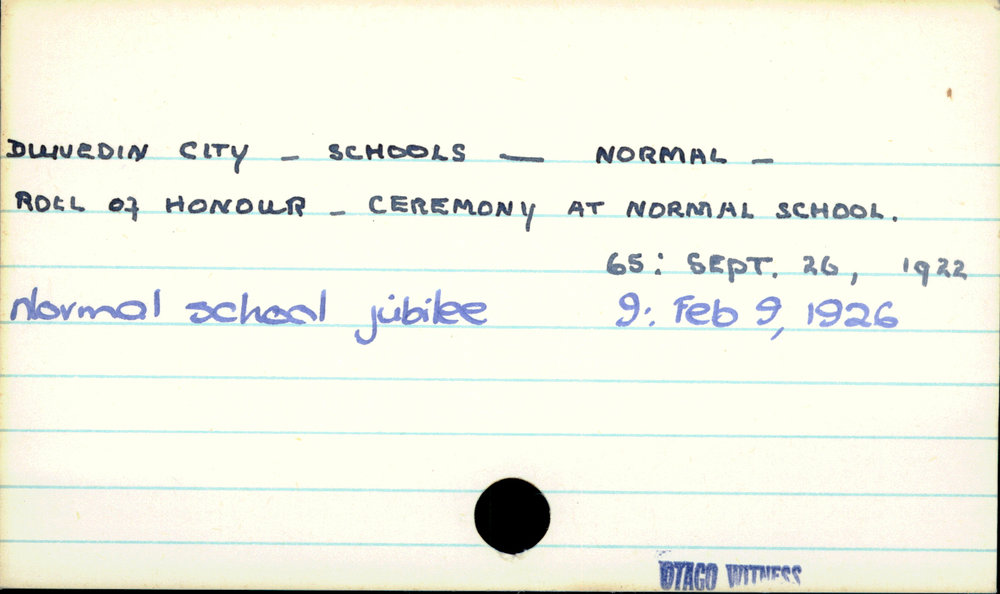 DUNEDIN CITY – SCHOOLS — NORMAL –
ROLL OF HONOUR – CEREMONY AT NORMAL SCHOOL.
65: SEPT. 26, 1922
Normal school jubilee 9: Feb 9, 1926
OTAGO WITNESS